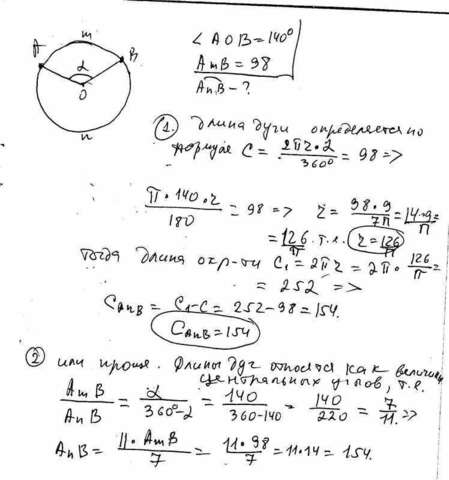 A m B
α
O
n
∠ AOB = 140°
AmB = 98
AnB - ?
1. Длина дуги определяется по
формуле C = 2πr·α / 360° = 98 =>
π·140·r / 180 = 98 => r = 98·9 / 7π = 14·9 / π =
= 126 / π т.е. r = 126 / π
тогда длина окр-ти C₁ = 2πr = 2π · 126 / π =
= 252 =>
C AnB = C₁-C = 252-98 = 154.
C AnB = 154
2 или проще. Длины дуг относятся как величины
центральных углов, т.е.
AmB / AnB = α / 360°-α = 140 / 360-140 = 140 / 220 = 7 / 11 =>
AnB = 11·AmB / 7 = 11·98 / 7 = 11·14 = 154.